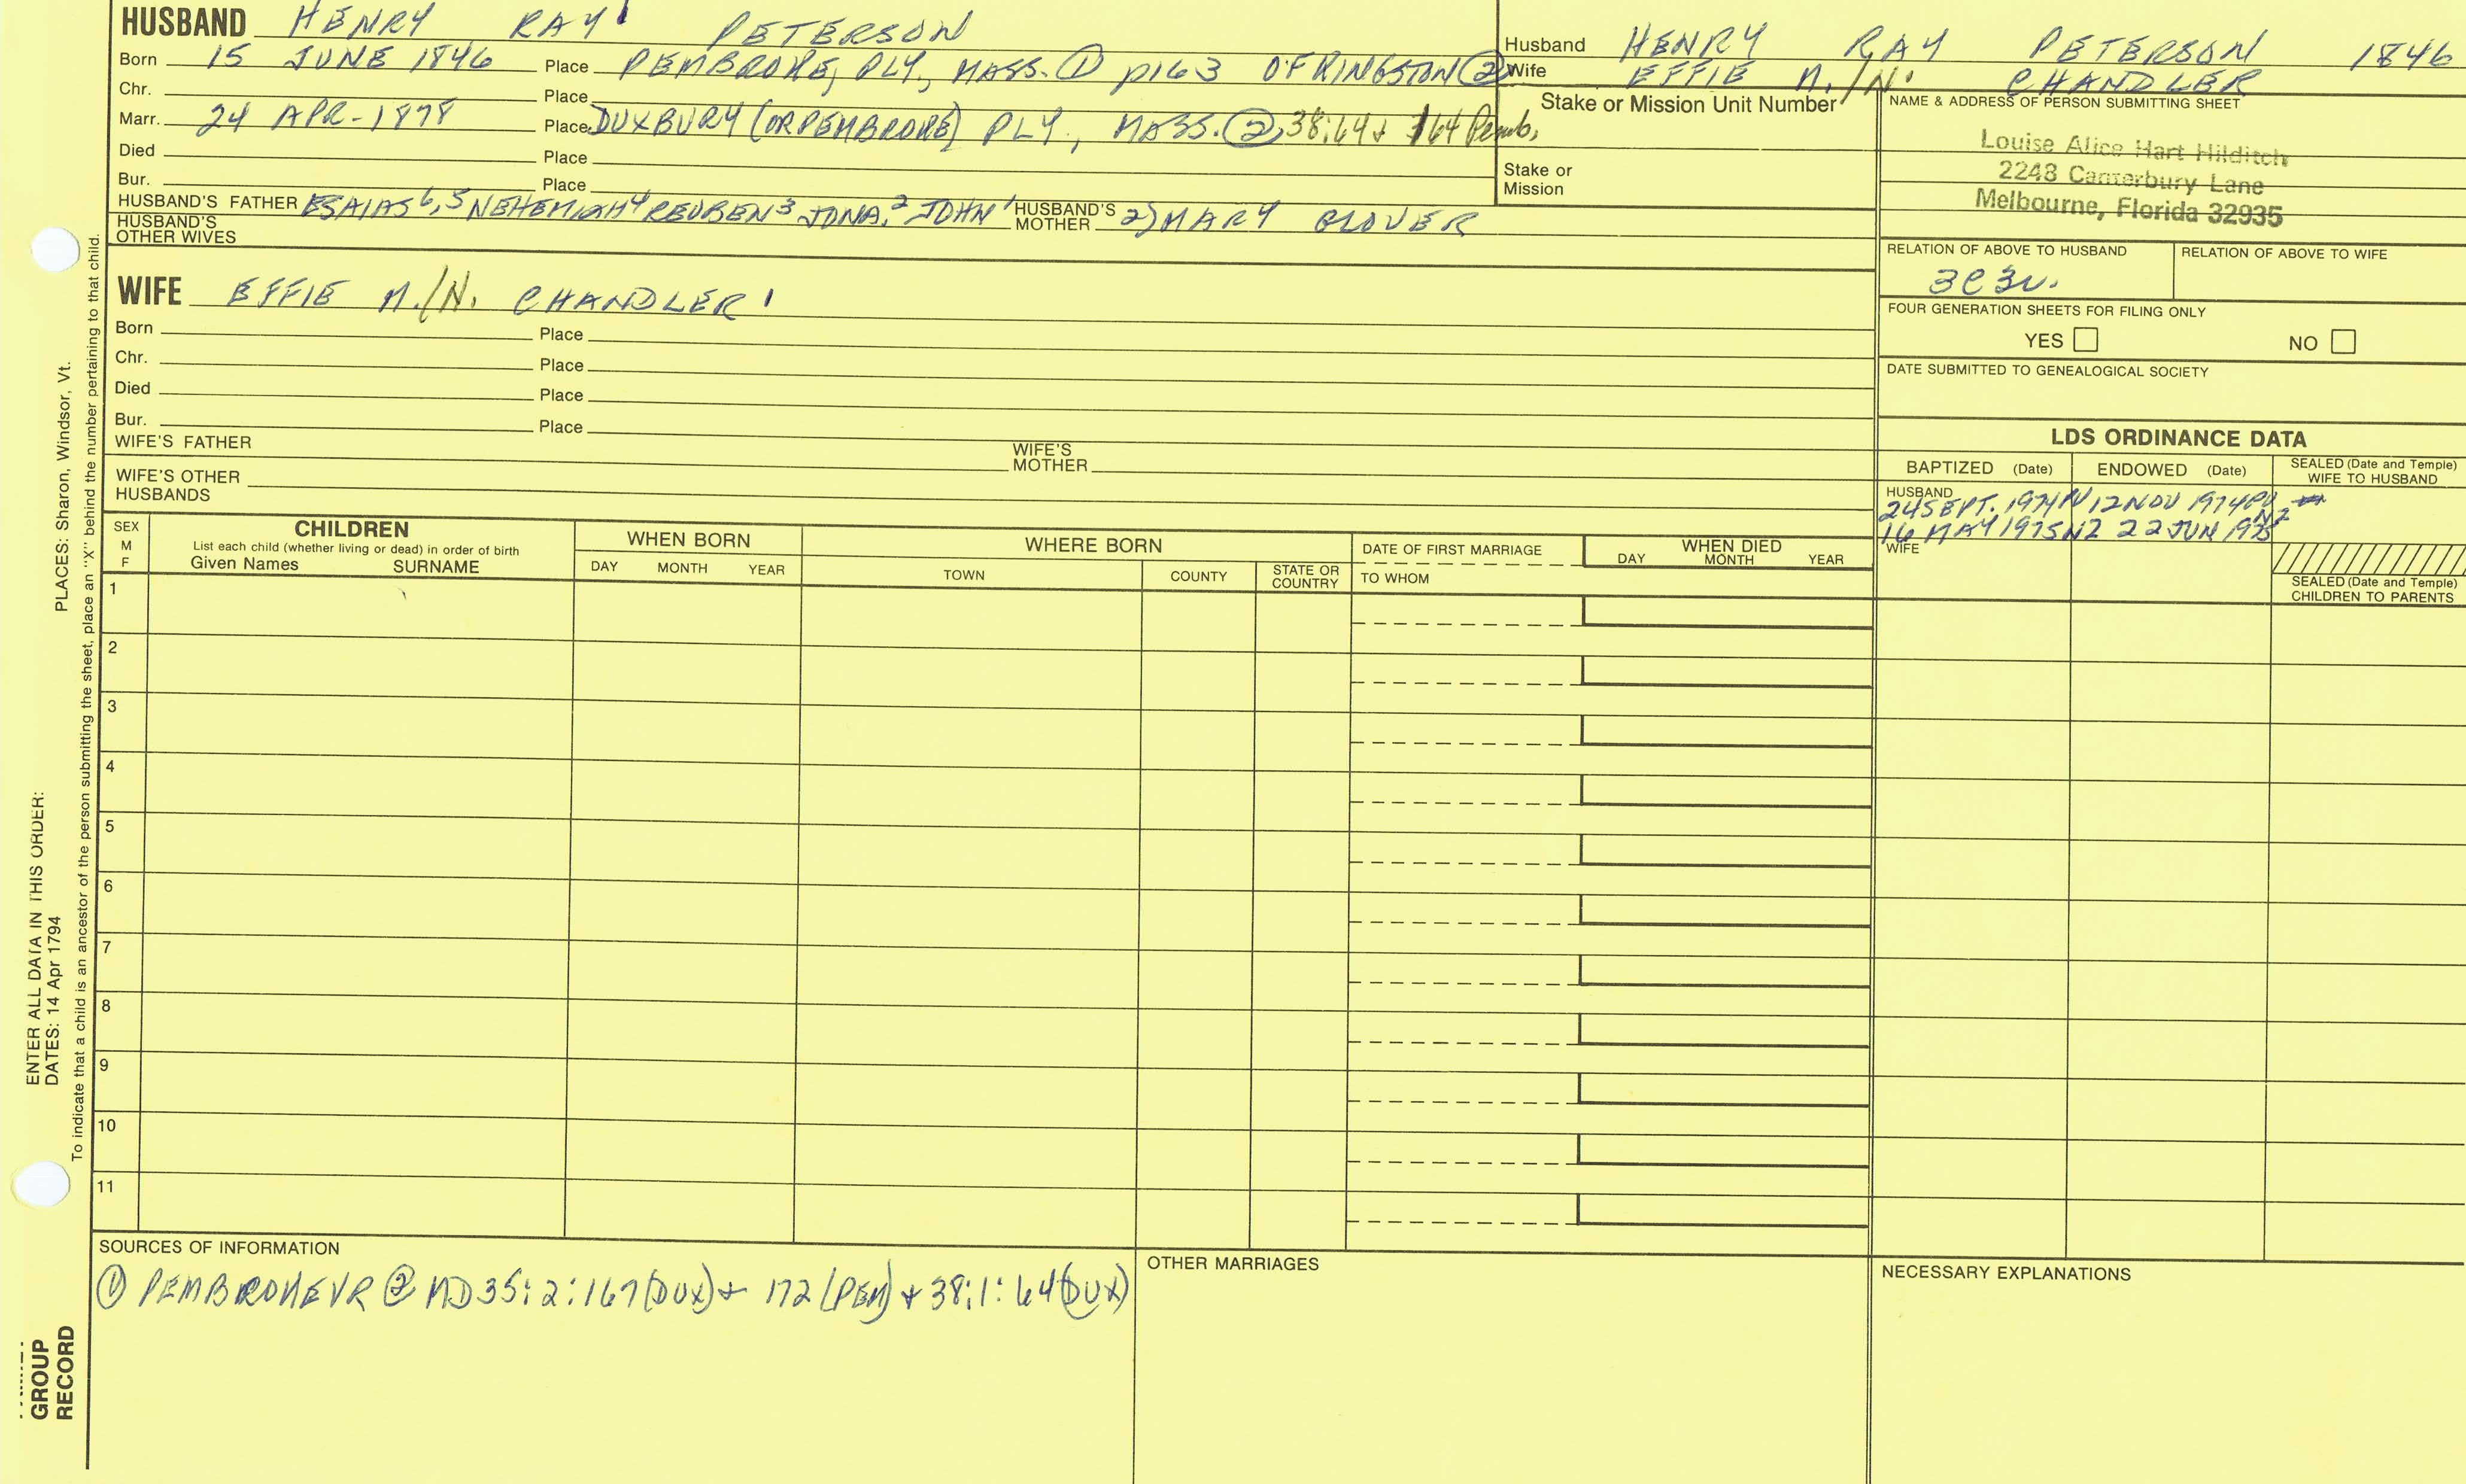 HUSBAND HENRY RAY¹ PETERSON
Born 15 JUNE 1846 Place PEMBROKE, PLY, MASS. ① p163 OF KINGSTON ②
Chr. Place
Marr. 24 APR-1878 Place DUXBURY (OR PEMBROKE) PLY, MASS. ② 38:64 + 164 Pemb.
Died Place
Bur. Place
HUSBAND'S FATHER ESAIAS 6,5 NEHEMIAH 4 REUBEN 3 JONA. 2 JOHN 1 HUSBAND'S MOTHER 2) MARY GLOVER
HUSBAND'S OTHER WIVES
Husband HENRY RAY PETERSON 1846
Wife EFFIE M./N. CHANDLER
Stake or Mission Unit Number
Stake or Mission
NAME & ADDRESS OF PERSON SUBMITTING SHEET
Louise Alice Hart Hilditch
2248 Canterbury Lane
Melbourne, Florida 32935
RELATION OF ABOVE TO HUSBAND RELATION OF ABOVE TO WIFE
3C3r.
FOUR GENERATION SHEETS FOR FILING ONLY
YES NO
DATE SUBMITTED TO GENEALOGICAL SOCIETY
WIFE EFFIE M./N. CHANDLER 1
Born Place
Chr. Place
Died Place
Bur. Place
WIFE'S FATHER WIFE'S MOTHER
WIFE'S OTHER HUSBANDS
LDS ORDINANCE DATA
BAPTIZED (Date) ENDOWED (Date) SEALED (Date and Temple) WIFE TO HUSBAND
HUSBAND
24 SEPT. 1974 PV 12 NOV 1974 PV
16 MAY 1975 NZ 22 JUN 1975 NZ
WIFE
SEALED (Date and Temple) CHILDREN TO PARENTS
SEX M F CHILDREN WHEN BORN WHERE BORN DATE OF FIRST MARRIAGE WHEN DIED
List each child (whether living or dead) in order of birth
Given Names SURNAME DAY MONTH YEAR TOWN COUNTY STATE OR COUNTRY TO WHOM DAY MONTH YEAR
1
2
3
4
5
6
7
8
9
10
11
SOURCES OF INFORMATION
① PEMBROKE VR ② MD 35:2:167 (DUX) + 172 (PEM) + 38:1:64 (DUX)
OTHER MARRIAGES
NECESSARY EXPLANATIONS
PLACES: Sharon, Windsor, Vt.
ENTER ALL DATA IN THIS ORDER:
DATES: 14 Apr 1794
To indicate that a child is an ancestor of the person submitting the sheet, place an "X" behind the number pertaining to that child.
GROUP
RECORD